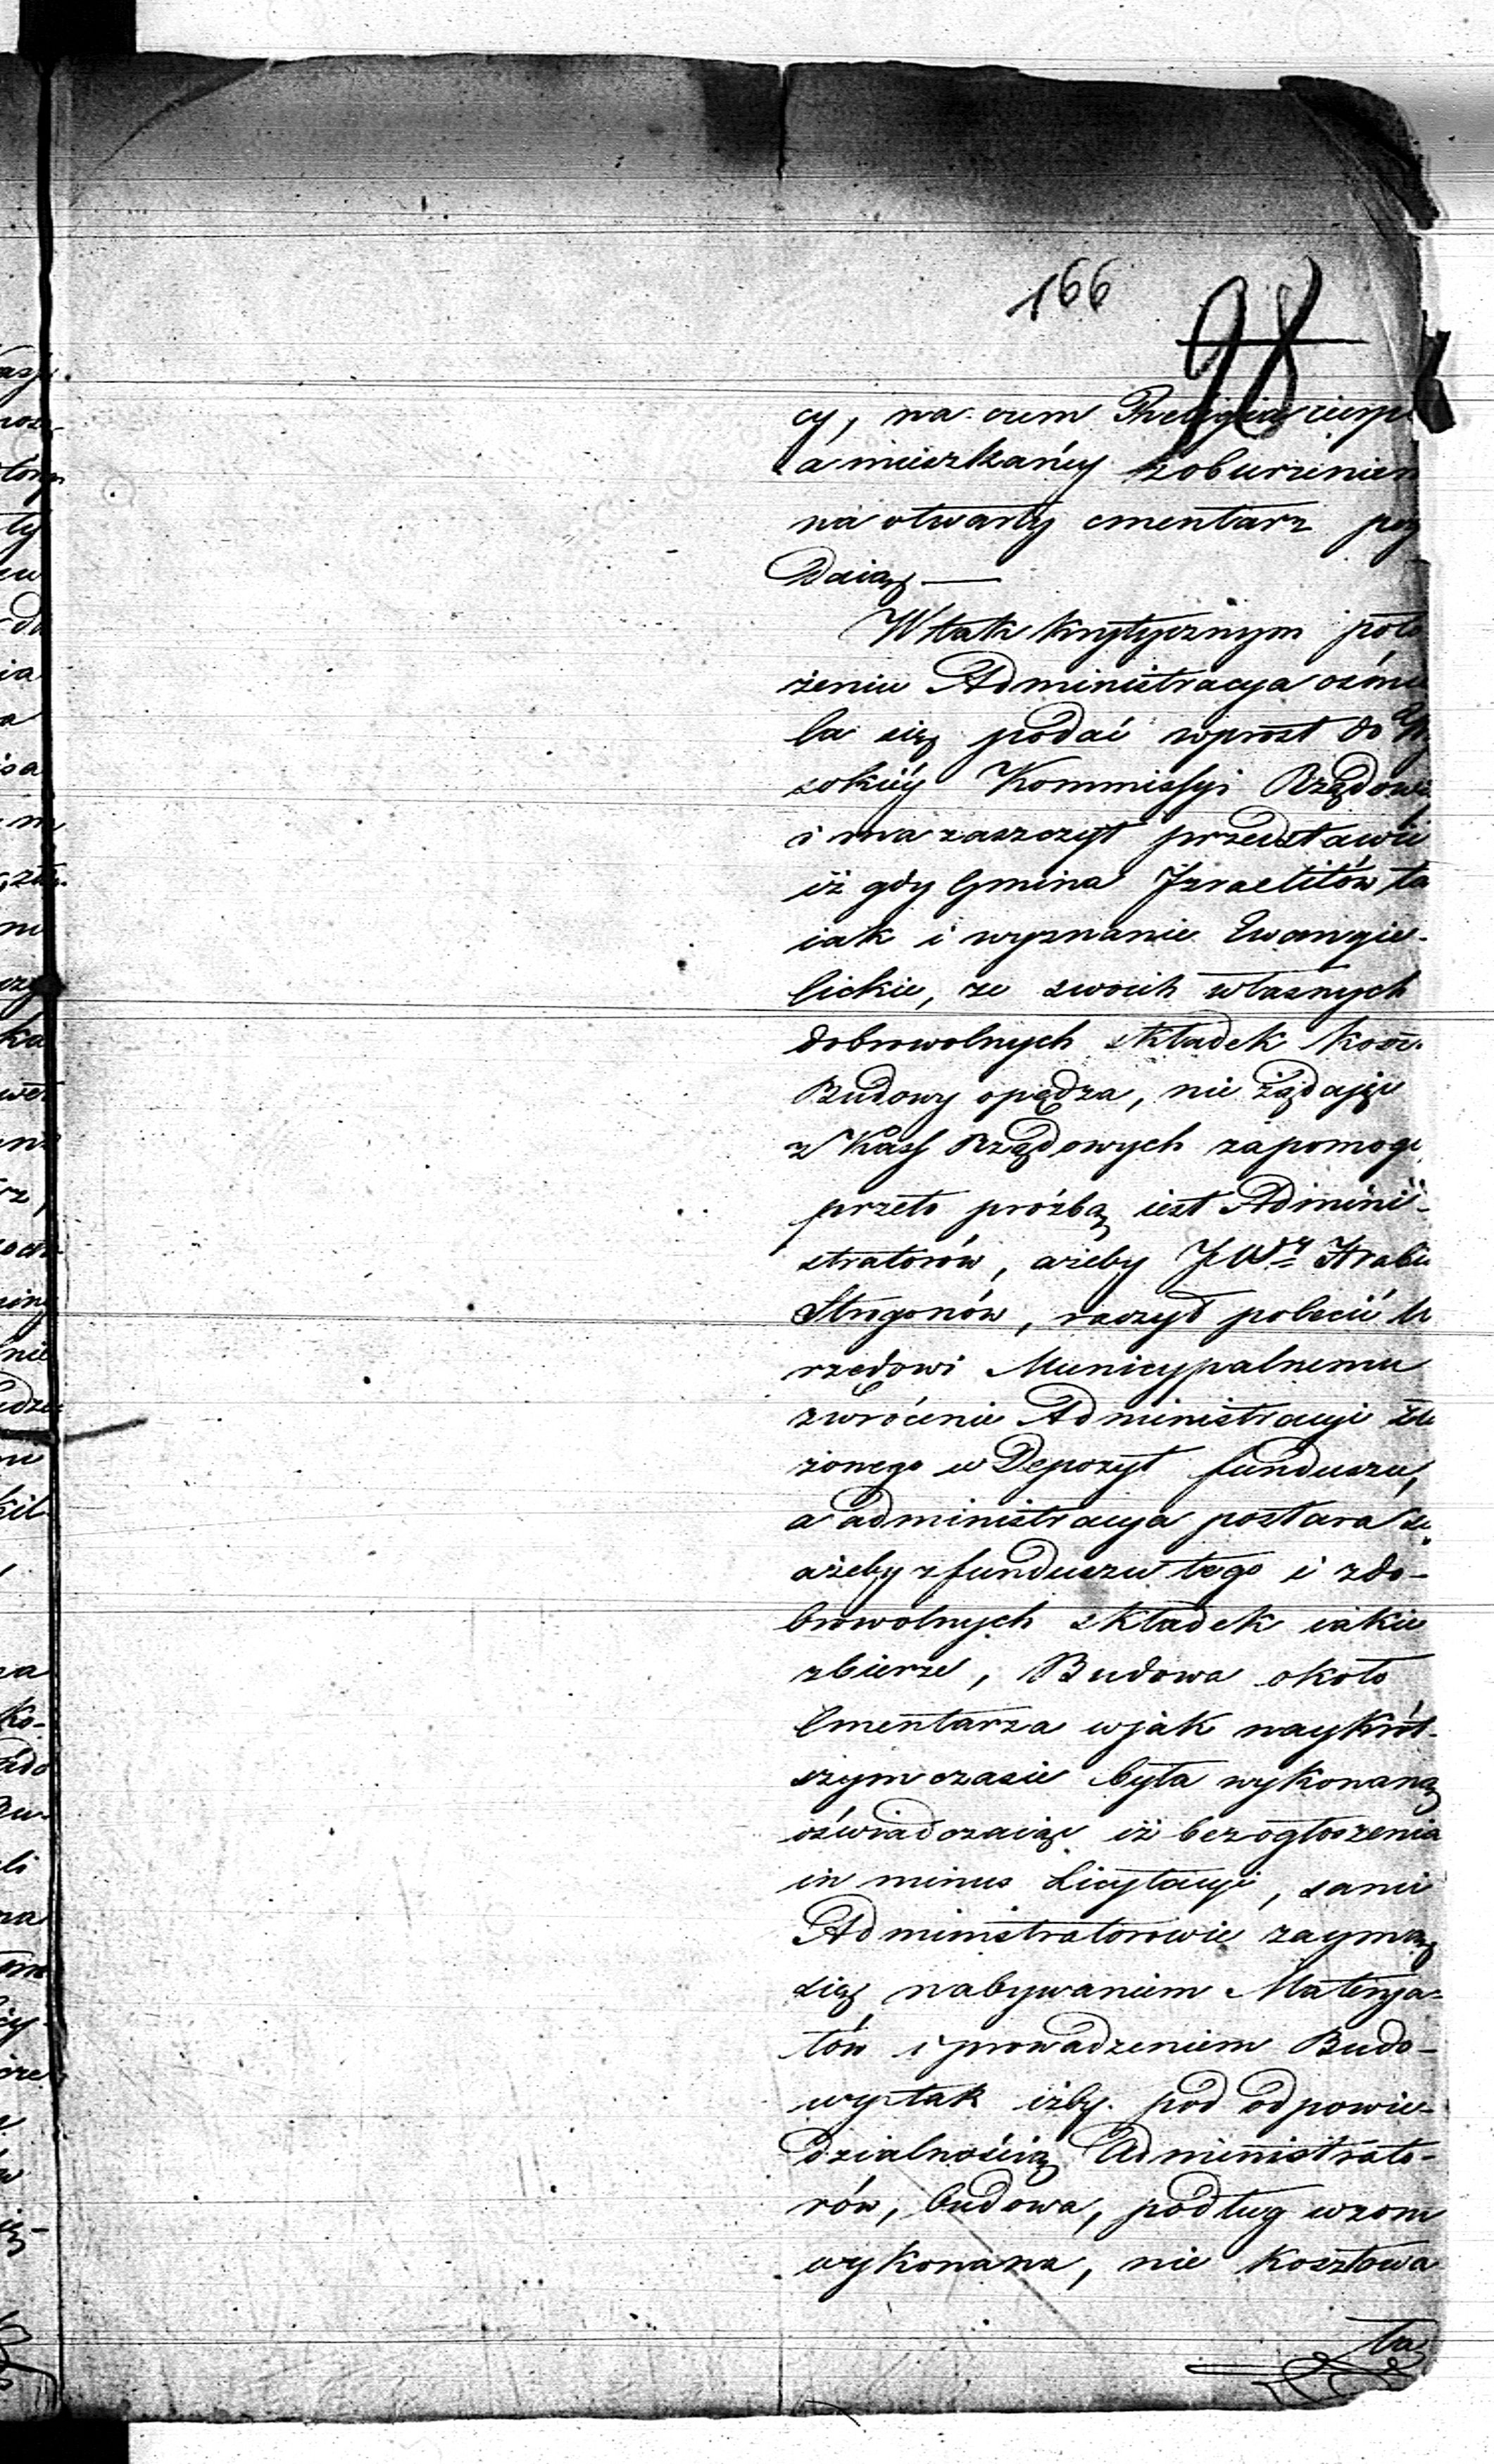 166
98
cy, na czem Religia cierpi
a mieszkańcy z oburzeniem
na otwarty cmentarz
W tak krytycznym poło
żeniu Administracya ośmie
la się podać wprost do Wy
sokiéy Kommissyi Rządowéy
i ma zaszczyt przedstawić
iż gdy Gmina Izraelitów ta
iak i wyznanie Ewangie-
lickie, ze swoich własnych
dobrowolnych składek koszt
Budowy opędza, nie żądając
z Kass Rządowych zapomogi
przeto prożbą iest Admini-
stratorów, ażeby JW Hrabia
Strogonów, raczył polecić U
rzędowi Municypalnemu
zwrócenie Administracyi zło
żonego w Depozyt funduszu,
a administracya postara się
ażeby z funduszu tego i z do-
browolnych składek iakie
zbierze, Budowa około
Cmentarza w jak naykrót-
szym czasie była wykonaną
oświadczaiąc iż bez ogłoszenia
in minus Licytacyi, sami
Administratorowie zaymą
się nabywaniem Materya-
łów i prowadzeniem Budo-
wy tak iżby pod odpowie-
dzialnością Administrato-
rów, budowa, podług wzoru
wykonana, nie kosztowa
ła